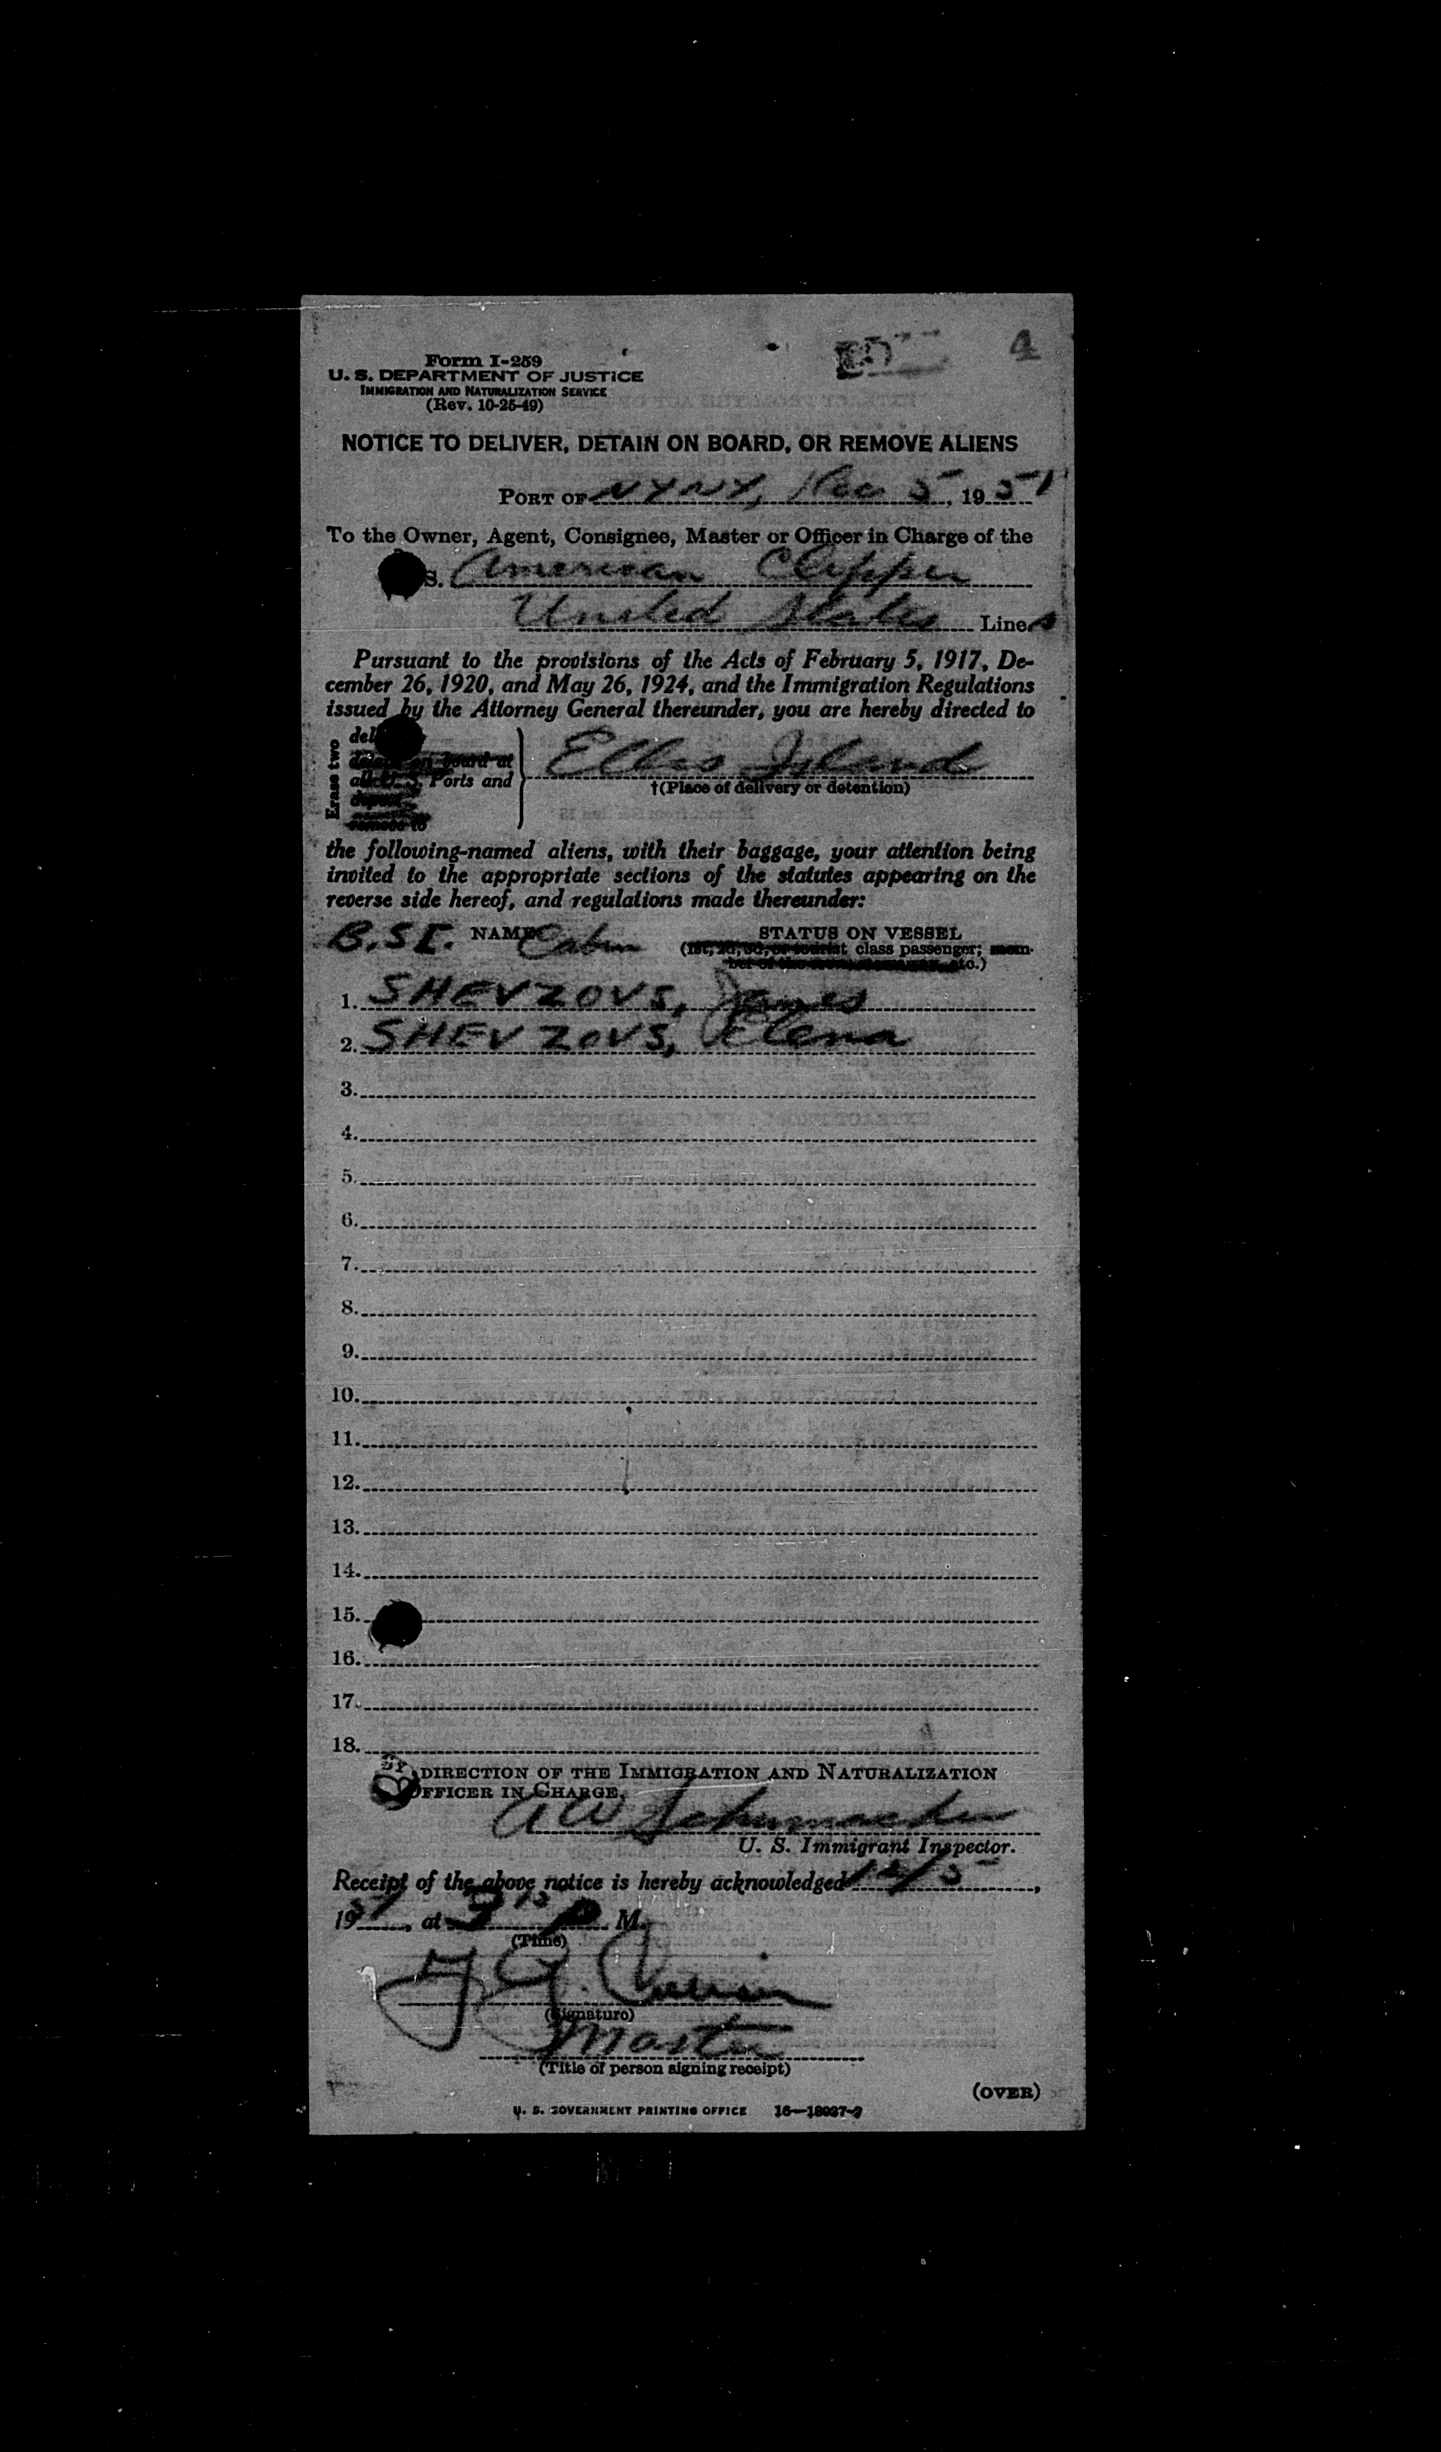 4
Form I-259
U. S. DEPARTMENT OF JUSTICE
IMMIGRATION AND NATURALIZATION SERVICE
(Rev. 10-25-49)
NOTICE TO DELIVER, DETAIN ON BOARD, OR REMOVE ALIENS
PORT OF NYNY, Dec 5, 1951
To the Owner, Agent, Consignee, Master or Officer in Charge of the
S. American Clipper
United States Lines
Pursuant to the provisions of the Acts of February 5, 1917, De-
cember 26, 1920, and May 26, 1924, and the Immigration Regulations
issued by the Attorney General thereunder, you are hereby directed to
Erase two
on board at
Ports and
Ellis Island
†(Place of delivery or detention)
the following-named aliens, with their baggage, your attention being
invited to the appropriate sections of the statutes appearing on the
reverse side hereof, and regulations made thereunder:
B.S.I. NAME Cabin STATUS ON VESSEL
class passenger; mem-
etc.)
1. SHEVZOVS, James
2. SHEVZOVS, Elena
3.
4.
5.
6.
7.
8.
9.
10.
11.
12.
13.
14.
15.
16.
17.
18.
BY DIRECTION OF THE IMMIGRATION AND NATURALIZATION
OFFICER IN CHARGE,
A W Schumacher
U. S. Immigrant Inspector.
Receipt of the above notice is hereby acknowledged 12/5,
1951, at 3 15 P M.
(Time)
(Signature)
Master
(Title of person signing receipt)
(OVER)
U. S. GOVERNMENT PRINTING OFFICE 16—18037-2